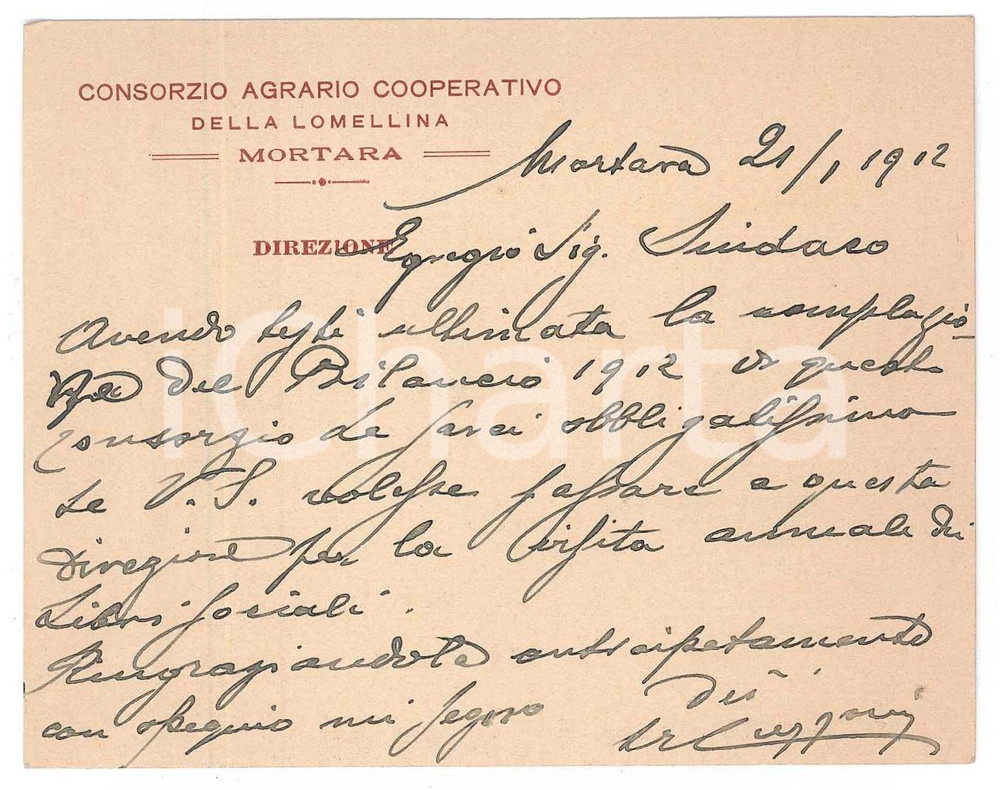 CONSORZIO AGRARIO COOPERATIVO
DELLA LOMELLINA
MORTARA
Mortara 21/1 1912
DIREZIONE
Egregio Sig. Sindaco
Avendo testè ultimata la compilazio-
ne del Bilancio 1912 di questo
Consorzio La farei obbligatissimo
se V. S. volesse passare a questa
Direzione per la visita annuale dei
Libri Sociali.
Ringraziandola anticipatamente
con ossequio mi segno
iCharta